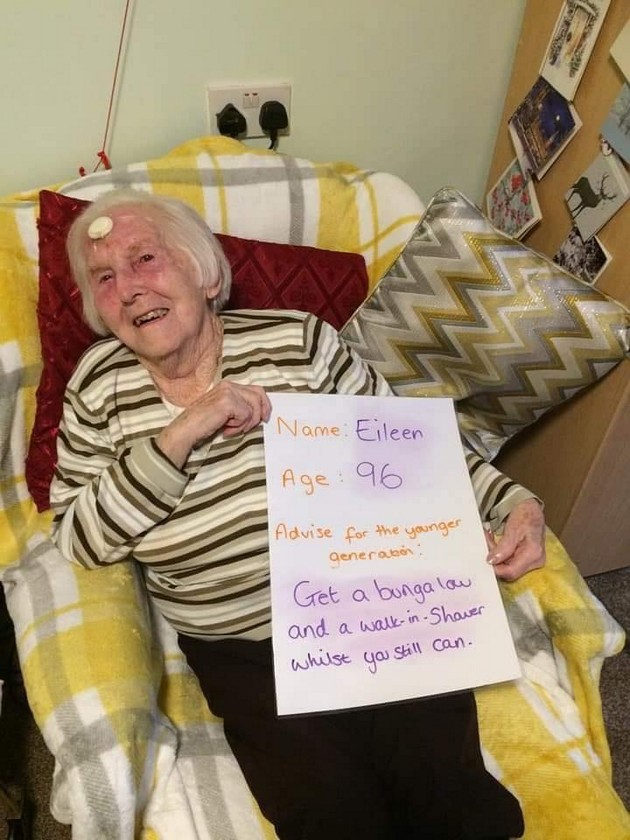 Name: Eileen
Age: 96
Advise for the younger
generation:
Get a bungalow
and a walk-in-Shower
whilst you still can.